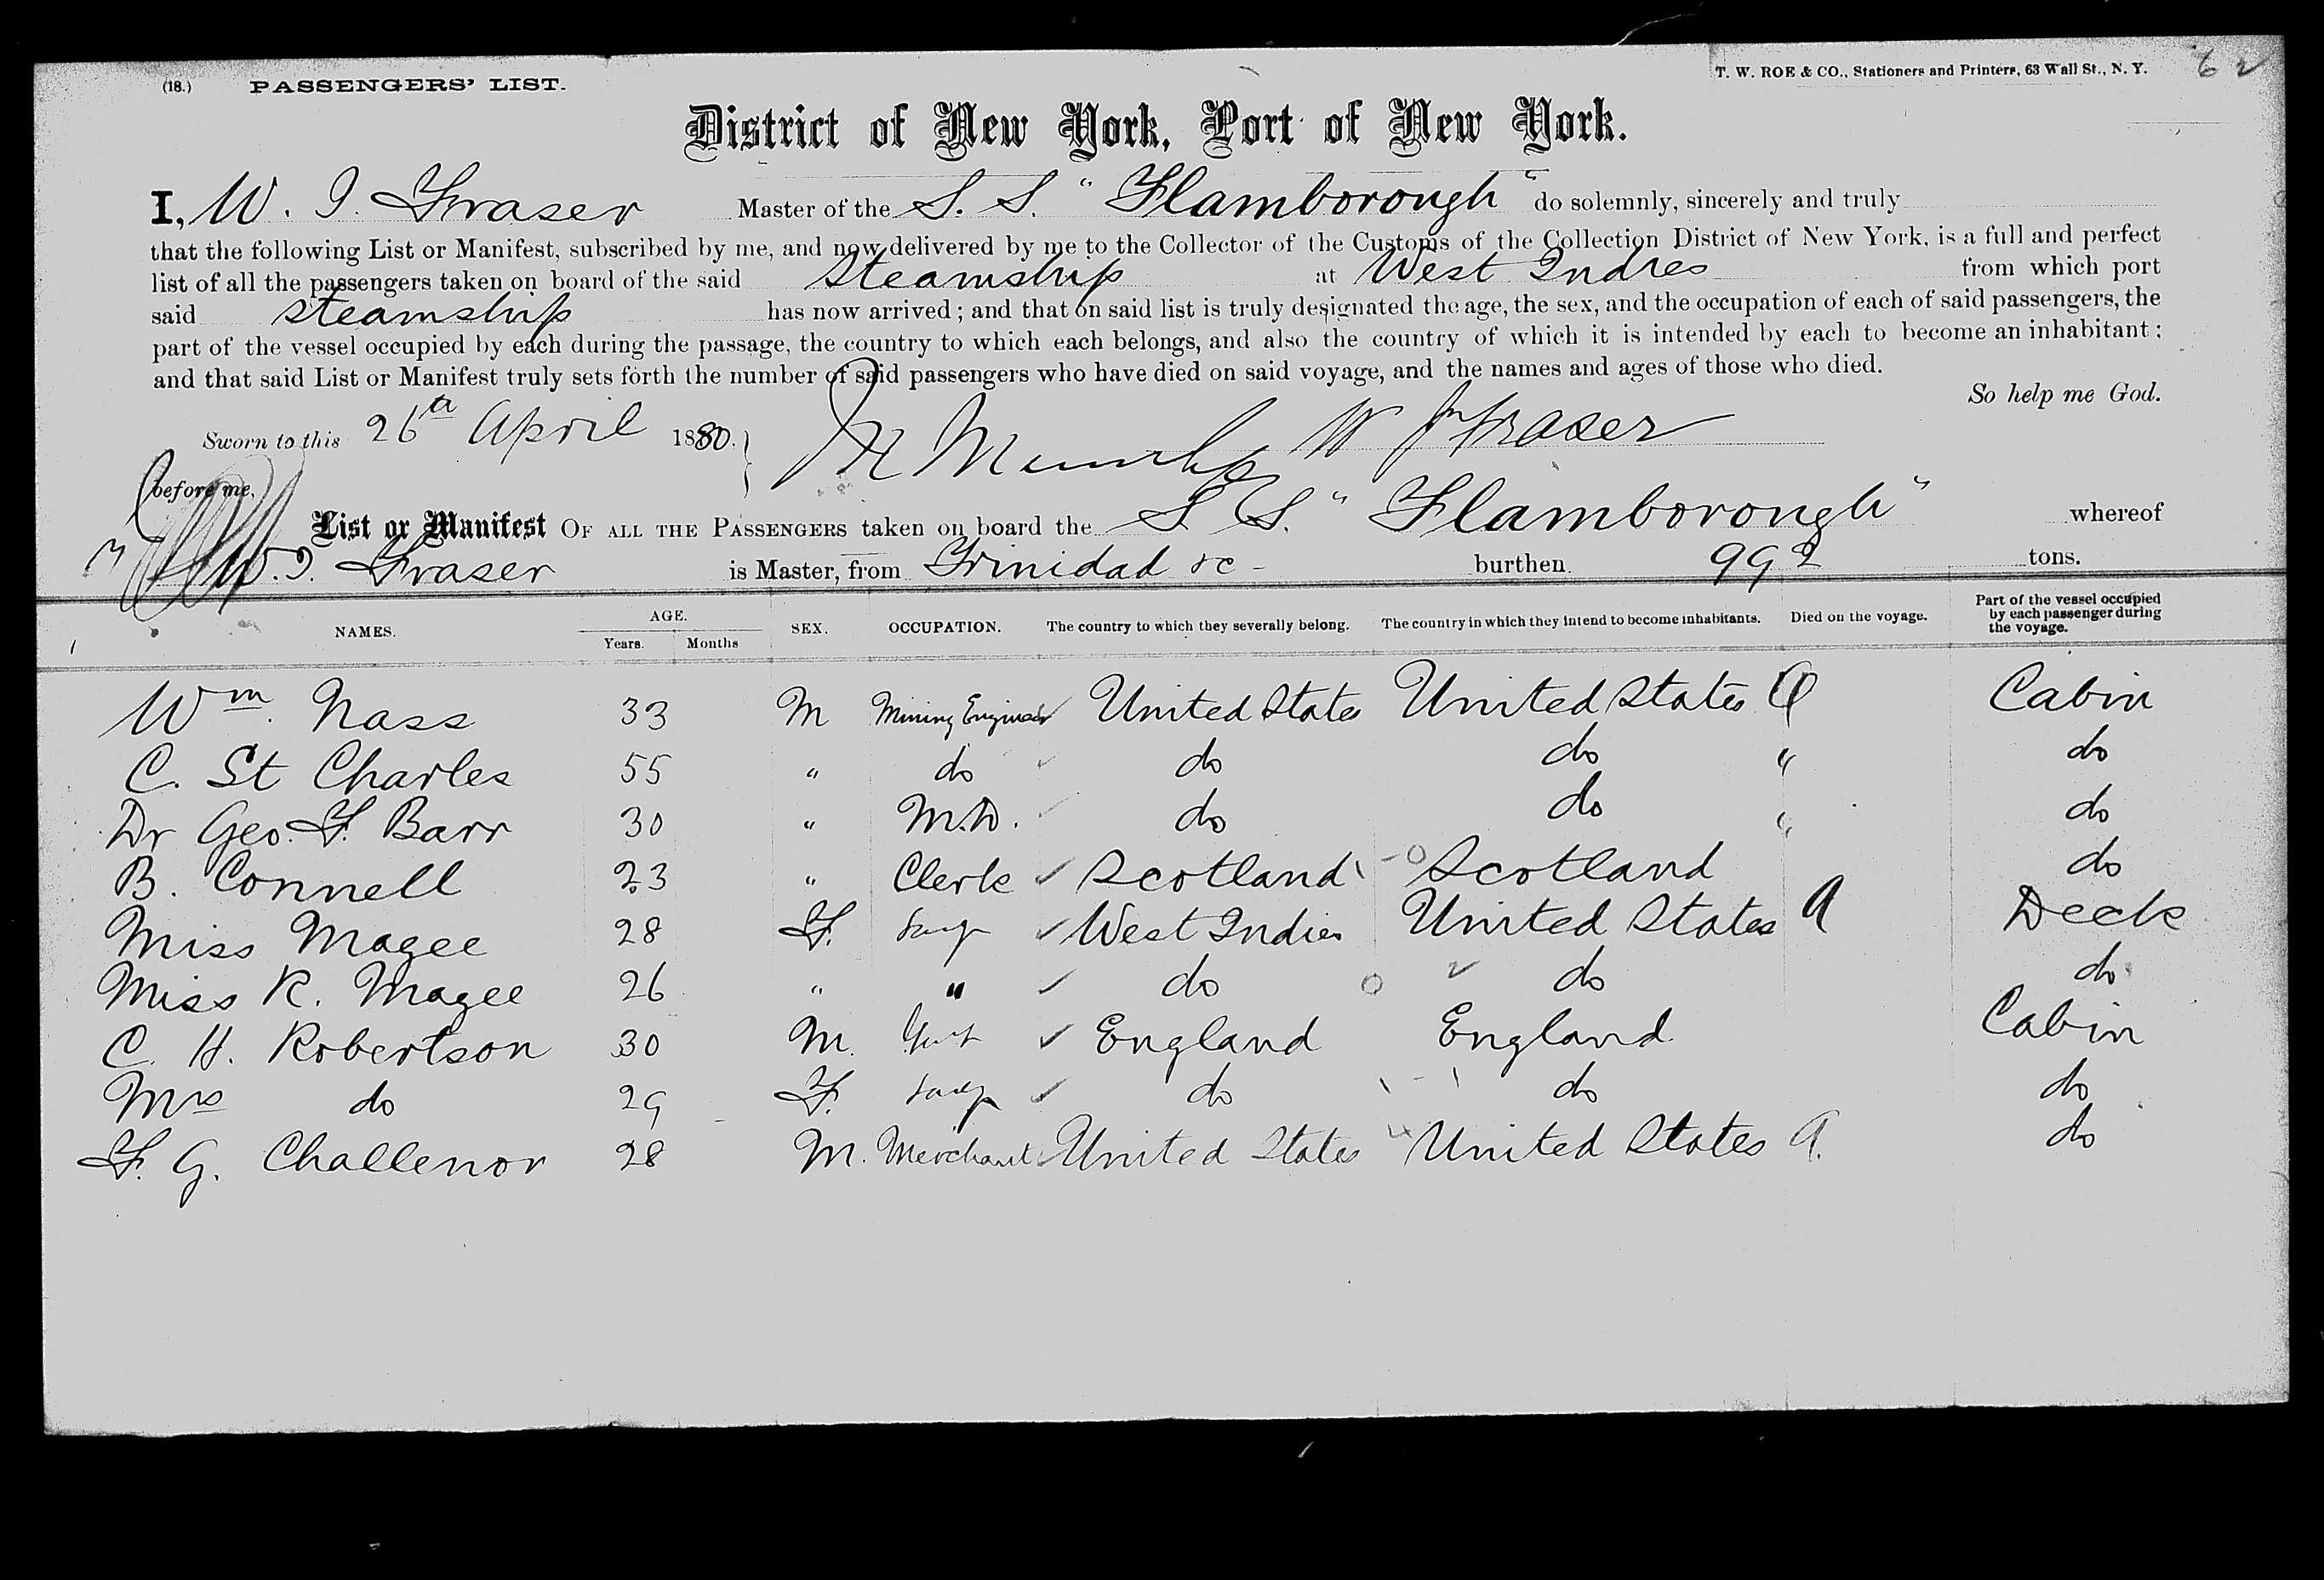 (18.) PASSENGERS' LIST. T. W. ROE & CO., Stationers and Printers, 63 Wall St., N. Y. 62
District of New York, Port of New York.
I, W. J. Fraser Master of the S. S. "Flamborough" do solemnly, sincerely and truly
that the following List or Manifest, subscribed by me, and now delivered by me to the Collector of the Customs of the Collection District of New York, is a full and perfect
list of all the passengers taken on board of the said Steamship at West Indies from which port
said Steamship has now arrived; and that on said list is truly designated the age, the sex, and the occupation of each of said passengers, the
part of the vessel occupied by each during the passage, the country to which each belongs, and also the country of which it is intended by each to become an inhabitant;
and that said List or Manifest truly sets forth the number of said passengers who have died on said voyage, and the names and ages of those who died.
So help me God.
Sworn to this 26th April 1880. W Fraser
before me,
List or Manifest OF ALL THE PASSENGERS taken on board the S. S. "Flamborough" whereof
W. J. Fraser is Master, from Trinidad &c - burthen 992 tons.
NAMES. AGE. Years. Months SEX. OCCUPATION. The country to which they severally belong. The country in which they intend to become inhabitants. Died on the voyage. Part of the vessel occupied by each passenger during the voyage.
Wm. Nass 33 M Mining Engineer United States United States Cabin
C. St Charles 55 " do do do " do
Dr Geo. F. Barr 30 " M.D. do do " do
B. Connell 23 " Clerk Scotland Scotland do
Miss Magee 28 F. West Indies United States Deck
Miss R. Magee 26 " " do do do
C. H. Robertson 30 M. England England Cabin
Mrs do 29 F. do do do
F. G. Challenor 28 M. Merchant United States United States do